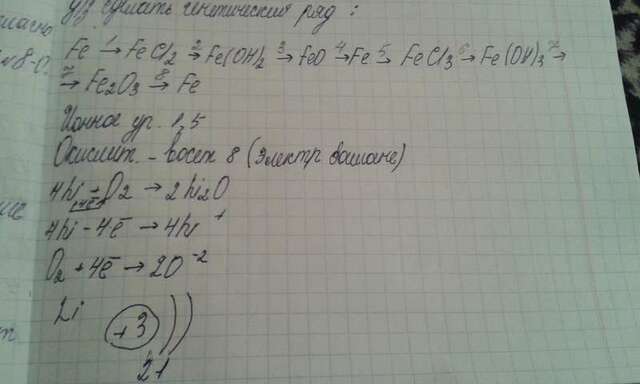 Д/З сделать генетический ряд:
Fe 1→ FeCl2 2→ Fe(OH)2 3→ FeO 4→ Fe 5→ FeCl3 6→ Fe(OH)3 7→
7→ Fe2O3 8→ Fe
Ионное ур. 1,5
Окислит. - восст 8 (электр баланс)
4Li + O2 → 2Li2O
4Li - 4ē → 4Li+
O2 + 4ē → 2O-2
Li +3 ) )
2 1